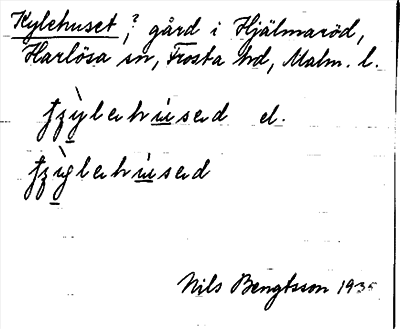 Kylehuset,? gård i Hjälmaröd,
Harlösa sn, Frosta hd, Malm. l.
el.
Nils Bengtsson 1935